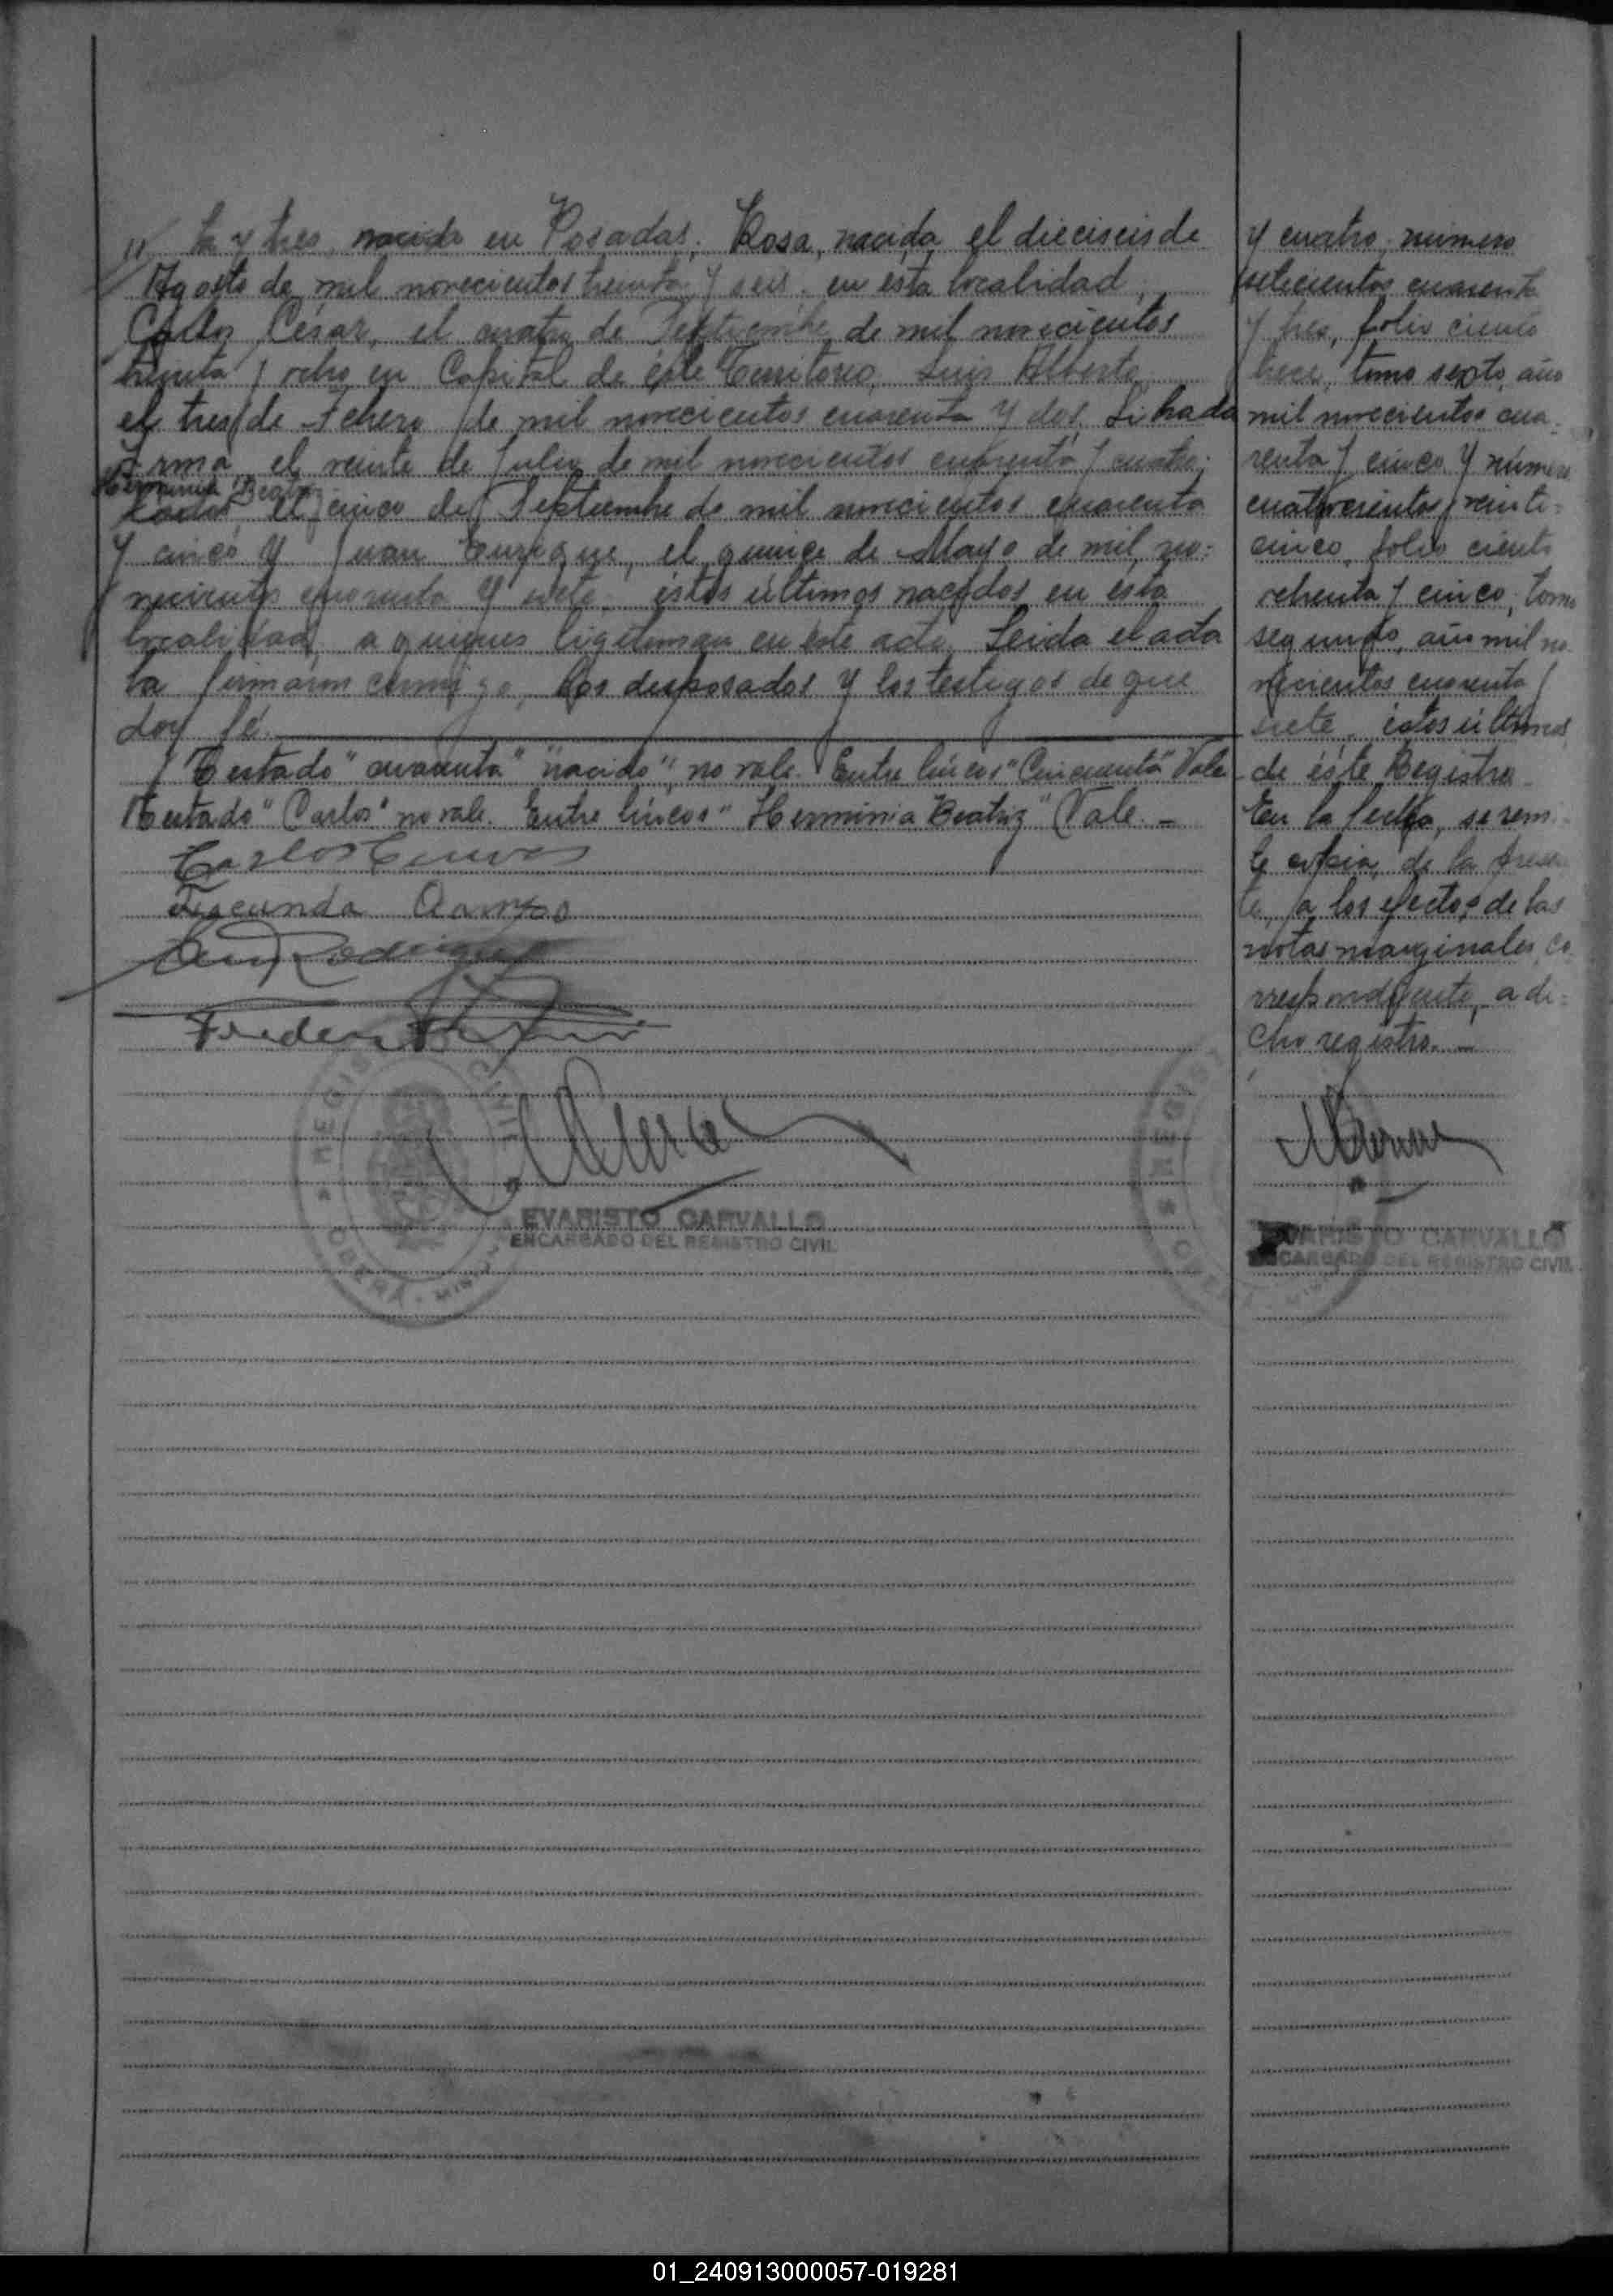 ta y tres, nacida en Posadas; Rosa, nacida el dieciseis de
Agosto de mil novecientos treinta y seis, en esta localidad,
Carlos César, el cuatro de Septiembre de mil novecientos
treinta y ocho en Capital de éste Territorio, Luis Alberto,
el tres de Febrero de mil novecientos cuarenta y dos,
Irma, el veinte de Julio de mil novecientos cuarenta y cuatro;
Herminia Beatriz
Carlos, el cinco de Septiembre de mil novecientos cuarenta
y cinco y Juan Enrique, el quince de Mayo de mil no=
vecientos cuarenta y siete, éstos últimos nacidos en ésta
localidad, a quienes legitiman en éste acto. Leida el acta
la firmaron conmigo, los desposados y los testigos de que
doy fé.
Testado "cuarenta" "nacido", no vale. Entre líneas "Cincuenta" Vale
Testado "Carlos" no vale. Entre líneas "Herminia Beatriz" Vale. -
Facunda
Rodriguez
REGISTRO CIVIL
OBERÁ - MISIONES
EVARISTO CARVALLO
ENCARGADO DEL REGISTRO CIVIL
y cuatro; número
setecientos cuarenta
y tres, folio ciento
trece, tomo sexto, año
mil novecientos cua=
renta y cinco y número
cuatrocientos veinti=
cinco, folio ciento
ochenta y cinco, tomo
segundo, año mil no
vecientos cuarenta y
siete, éstos últimos
de éste Registro.
En la fecha, se remi=
te copia, de la presen
te, a los efectos de las
notas marginales, co
rrespondiente, a di=
cho registro. -
EVARISTO CARVALLO
ENCARGADO DEL REGISTRO CIVIL
01_240913000057-019281